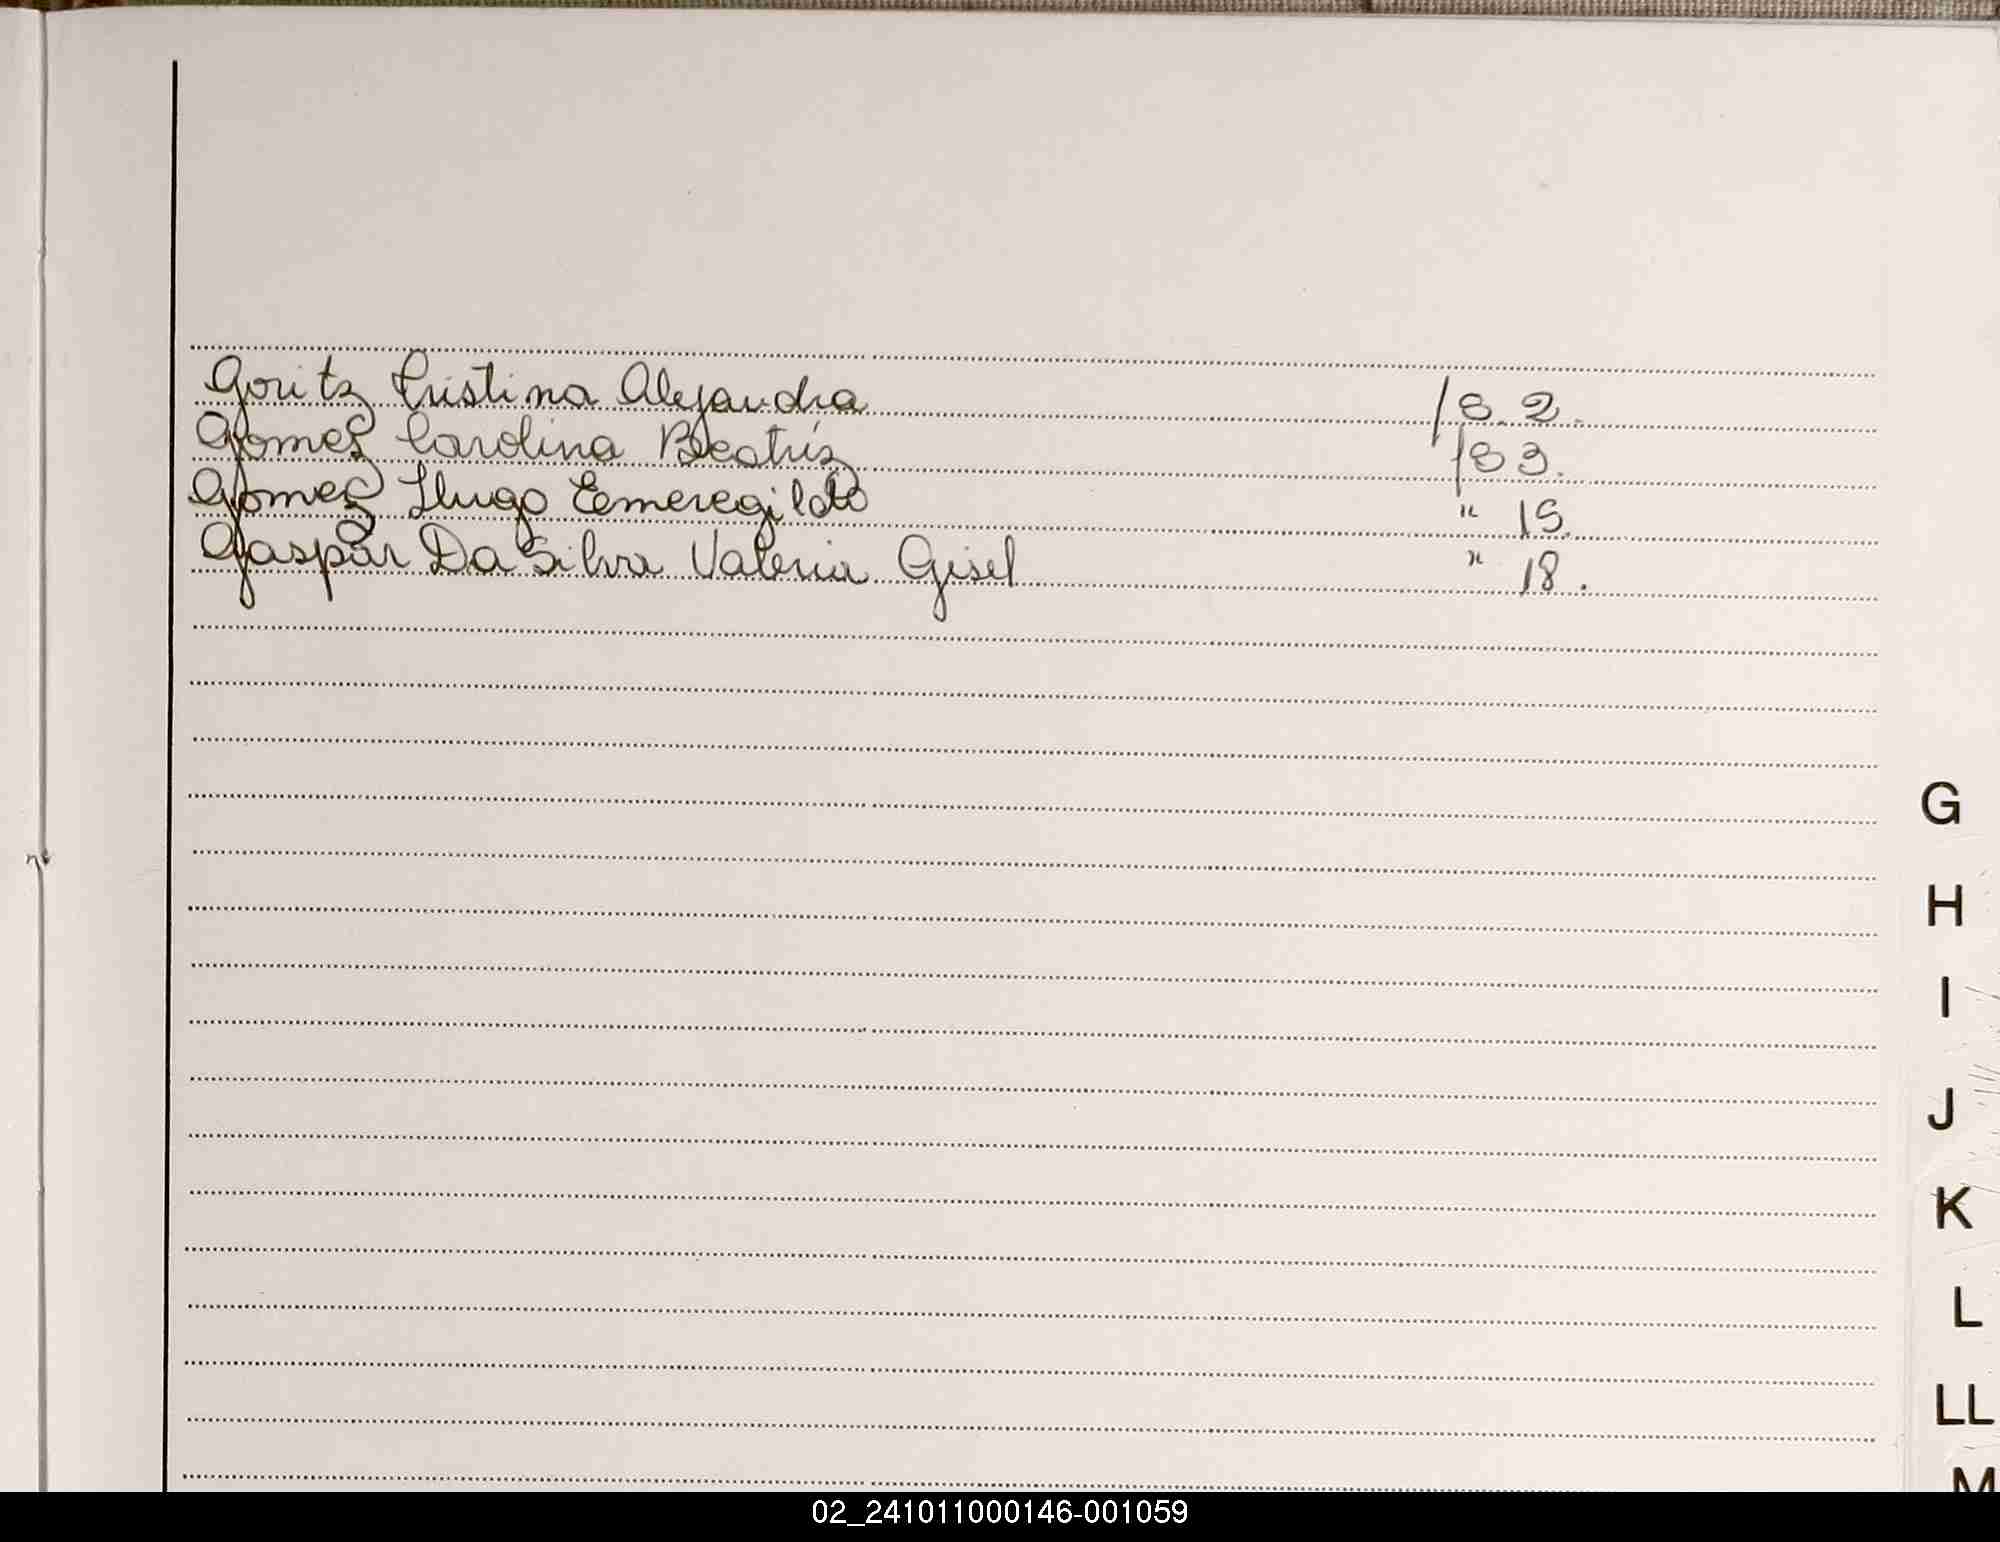 Goritz Cristina Alejandra / S. 2.
Gomez Carolina Beatríz / S 3.
Gomez Hugo Eemeregildo " 15.
Gaspar Da Silva Valeria Gisel " 18.
G
H
I
J
K
L
LL
M
02_241011000146-001059